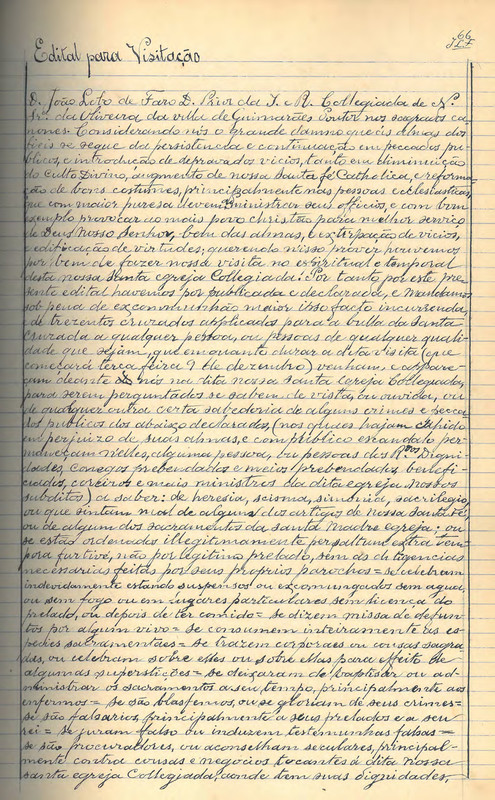 66
J.L.F
Edital para Visitação
D. João Lobo de Faro D. Prior da I. e R. Collegiada de N.
Snr.ª da Oliveira da villa de Guimarães Doutor nos sagrados ca-
nones. Considerando nós o grande damno que ás almas dos
fieis se segue da persistencia e continuação em peccados pu-
blicos, e introdução de depravados vicios, tanto em diminuição
do Culto Divino, augmento de nossa santa fé Catholica, e reforma-
ção de bons costumes, principalmente nas pessoas ecclesiasticas,
que com maior puresa devem ministrar seus officios, e com bom
exemplo provocar ao mais povo christão para melhor serviço
de Deus Nosso Senhor, bem das almas, extirpação de vicios,
e edificação de virtudes; querendo nisso prover houvemos
por bem de fazer nossa visita no espiritual e temporal
desta nossa santa egreja Collegiada. Por tanto por este pre-
sente edital havemos por publicada e declarada, e Mandamos
sob pena de excommunhão maior ipso facto incurrenda,
e de trezentos cruzados applicados para a bulla da Santa
Cruzada a qualquer pessoa, ou pessoas de qualquer quali-
dade que sejam, que emquanto durar a dita visita (que
começará terça feira 9 de dezembro) venham, e appare-
çam deante de nós na dita nossa santa egreja Collegiada,
para serem perguntados se sabem de vista, ou ouvida, ou
de qualquer outra certa sabedoria de alguns crimes e pecca-
dos publicos dos abaixo declarados, (nos quaes hajam cahido
em perjuizo de suas almas, e com publico escandalo per-
maneçam nelles, alguma pessoa, ou pessoas dos R.dos Digni-
dades, conegos prebendados e meios prebendados, benefi-
ciados, coreiros e mais ministros da dita egreja nossos
subditos) a saber: de heresia, scisma, simonia, sacrilegio,
ou que sintam mal de algum dos artigos de nossa Santa Fé,
ou de algum dos sacramentos da santa Madre egreja; ou
se estão ordenados illegitimamente per saltum, extra tem-
pora furtivé, não por legitimo prelado, sem as diligencias
necessarias feitas por seus proprios parochos = se celebram
indevidamente estando suspensos ou excomungados sem agua,
ou sem fogo ou em lugares particulares sem licença do
prelado, ou depois de ter comido = se dizem missa de defun-
tos por algum vivo = se consumem inteiramente as es-
pecies sacramentaes = se trazem corporaes ou cousas sagra-
das, ou celebram sobre elles ou sobre ellas para effeito de
algumas superstições = se deixaram de baptisar ou ad-
ministrar os sacramentos a seu tempo, principalmente aos
enfermos = se são blasfemos, ou se gloriam de seus crimes =
se são falsarios, principalmente a seus prelados e a seu
rei = se juram falso ou induzem testemunhas falsas =
se são procuradores, ou aconselham seculares, principal-
mente contra cousas e negocios tocantes á dita nossa
santa egreja Collegiada, aonde tem suas dignidades,